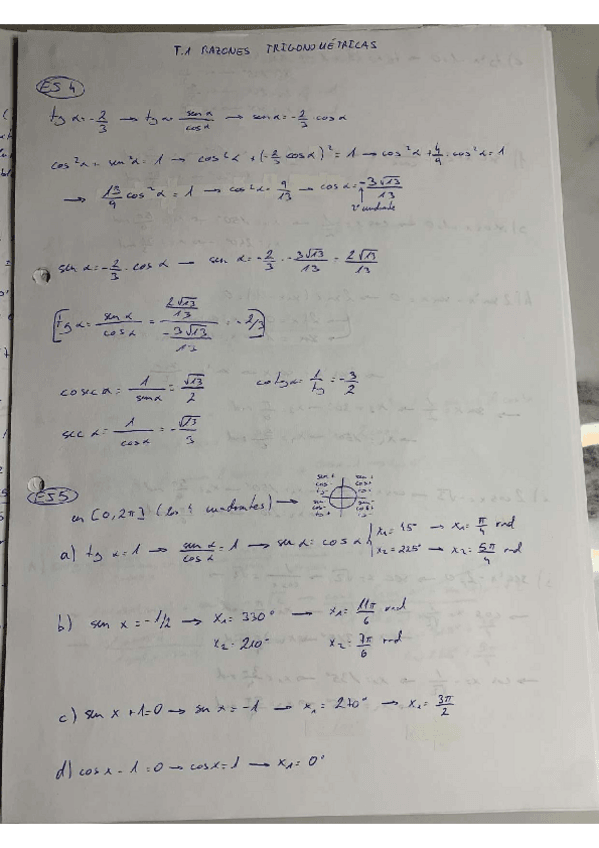 T.1 RAZONES TRIGONOMÉTRICAS
ES 4
tg α = -2/3 → tg α = sen α/cos α → sen α = -2/3 · cos α
cos²α + sen²α = 1 → cos²α + (-2/3 cos α)² = 1 → cos²α + 4/9 · cos²α = 1
→ 13/9 cos²α = 1 → cos²α = 9/13 → cos α = -3√13/13
2º cuadrante
sen α = -2/3 · cos α → sen α = -2/3 · -3√13/13 = 2√13/13
[tg α = sen α/cos α = (2√13/13)/(-3√13/13) = -2/3]
cosec α = 1/sen α = √13/2 cotg α = 1/tg = -3/2
sec α = 1/cos α = -√13/3
ES5
en [0, 2π] (los 4 cuadrantes) →
a) tg α = 1 → sen α/cos α = 1 → sen α = cos α x₁ = 45° → x₁ = π/4 rad
x₂ = 225° → x₂ = 5π/4 rad
b) sen x = -1/2 → x₁ = 330° → x₁ = 11π/6 rad
x₂ = 210° x₂ = 7π/6 rad
c) sen x + 1 = 0 → sen x = -1 → x₁ = 270° → x₁ = 3π/2
d) cos x - 1 = 0 → cos x = 1 → x₁ = 0°